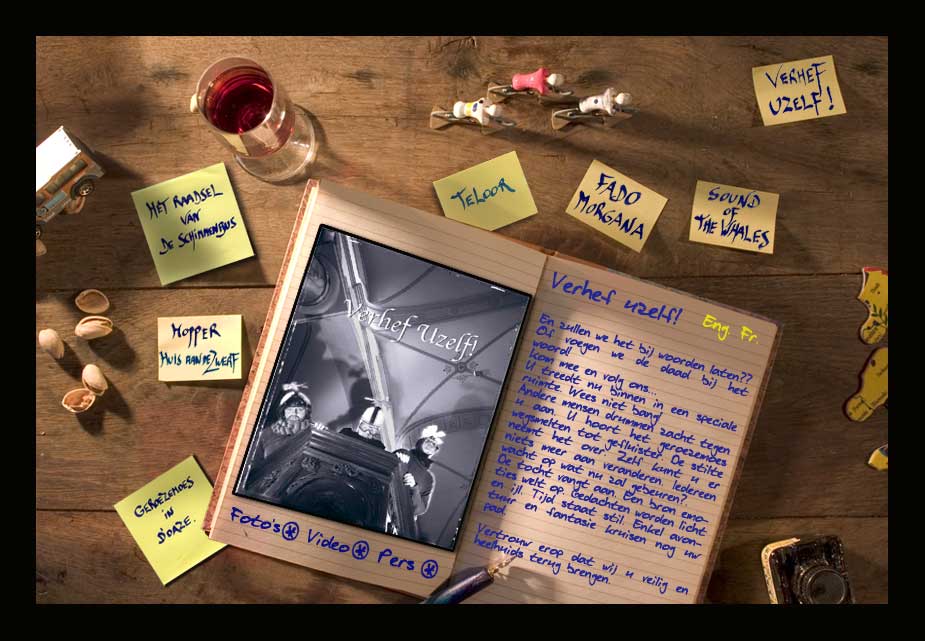 VERHEF
UZELF!
HET RAADSEL
VAN
DE SCHIMMENBUS
TELOOR
FADO
MORGANA
SOUND
OF
THE WHALES
HOPPER
HUIS AAN DE ZWERF
GEROEZEMOES
IN
D'OAZE.
Verhef Uzelf!
Foto's Video Pers
Verhef uzelf!
Eng. Fr.
En zullen we het bij woorden laten??
Of voegen we de daad bij het
woord!
Kom mee en volg ons...
U treedt nu binnen in een speciale
ruimte. Wees niet bang.
Andere mensen drummen zacht tegen
u aan. U hoort het geroezemoes
wegsmelten tot gefluister. De stilte
neemt het over. Zelf kunt u er
niets meer aan veranderen. Iedereen
wacht op wat nu zal gebeuren?
De tocht vangt aan. Een bron emo-
ties welt op. Gedachten worden licht
en ijl. Tijd staat stil. Enkel avon-
tuur en fantasie kruisen nog uw
pad.
Vertrouw erop dat wij u veilig en
heelhuids terug brengen.